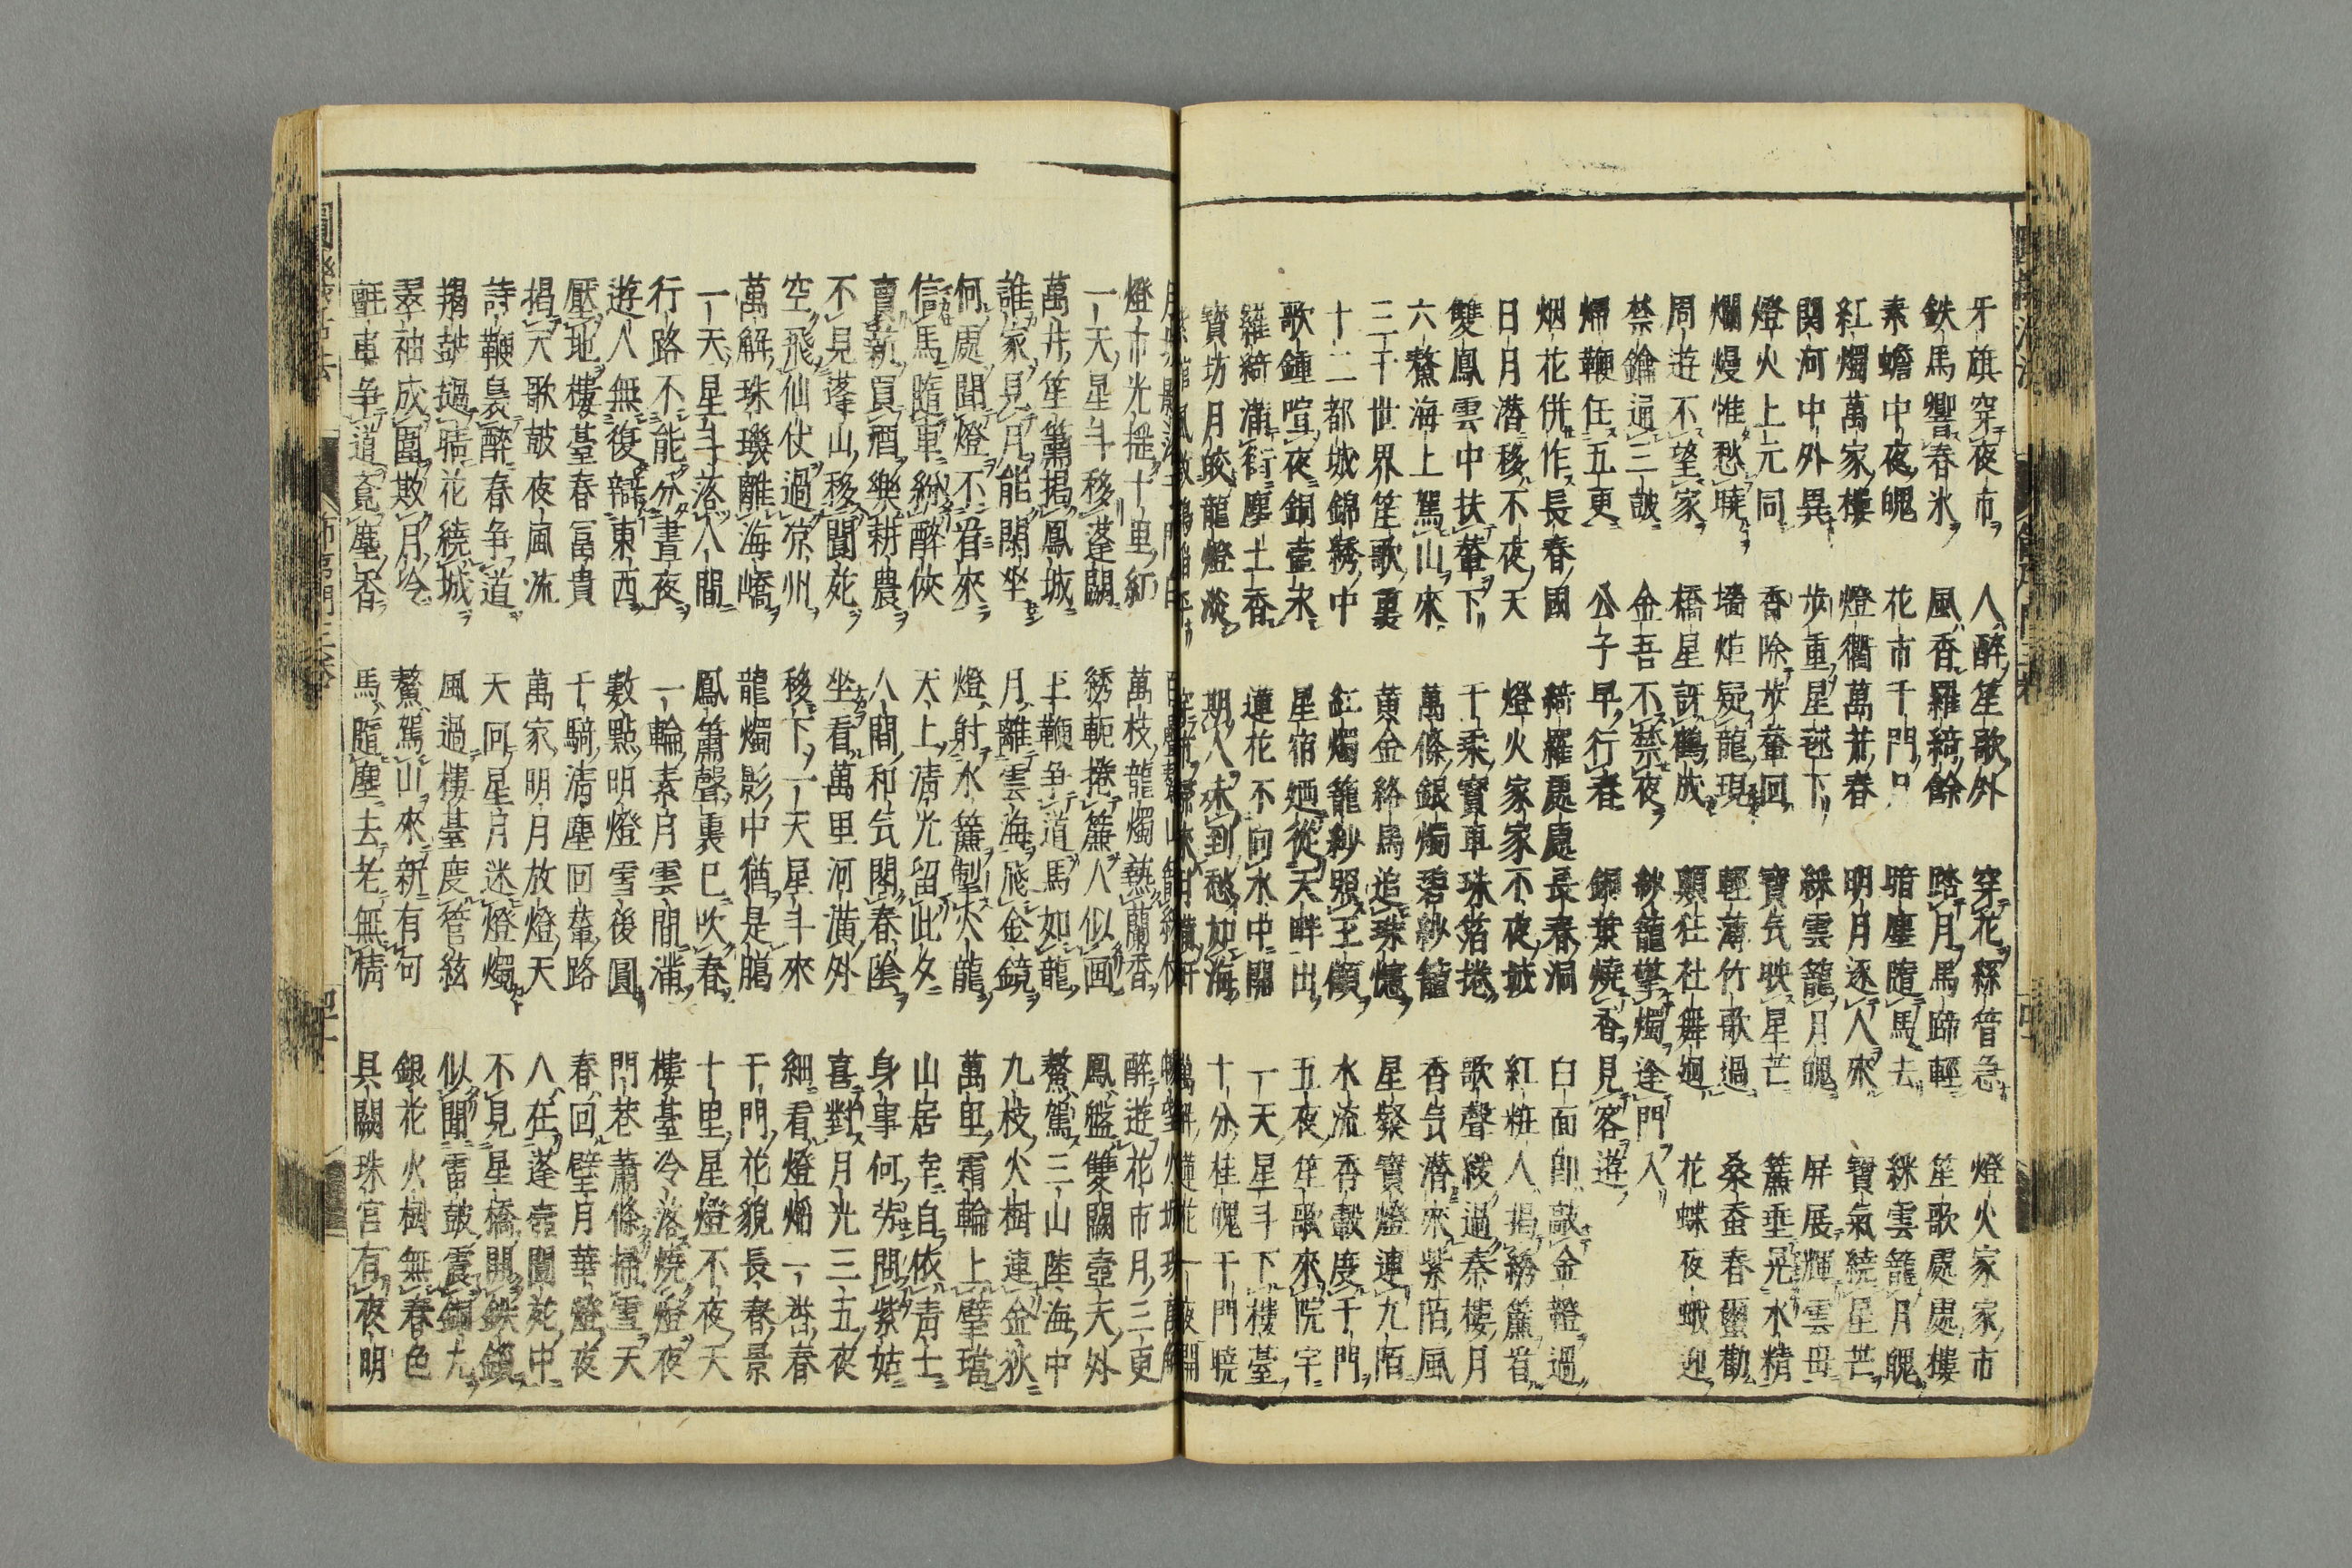 牙旗穿夜市 人醉笙歌外 穿花絲管急 燈火家家市
鉄馬響春氷 風香羅綺餘 踏月馬蹄輕 笙歌處處樓
素蟾中夜魄 花市千門月 暗塵隨馬去 綵雲籠月魄
紅燭萬家樓 燈衢萬井春 明月逐人來 寶氣繞星芒
関河中外異 歩重星毬下 綵雲籠月魄 屏展輝雲母
燈火上元同 香除放輦回 寶気映星芒 簾垂晃水精
爛熳惟愁曉 墻炬疑龍現 輕薄竹歌過 桑蚕春蠒勸
周遊不望家 橋星訝鶴成 顛狂社舞廻 花蝶夜蛾迎
禁鑰通三皷 金吾不禁夜 紗籠擎燭逢門入
帰鞭任五更 公子早行春 銅葉燒香見客遊
烟花併作長春國 綺羅處處長春洞 白面郎敲金鐙過
日月潜移不夜天 燈火家家不夜城 紅粧人掲綉簾看
雙鳳雲中扶輦下 千乘寳車珠箔捲 歌聲緩過秦樓月
六鰲海上駕山來 萬條銀燭碧紗籠 香気潜來紫陌風
三千世界笙歌裏 黄金絡馬追珠憶 星繁寶燈連九陌
十二都城錦綉中 紅燭籠紗照玉顔 水流香轂度千門
歌鍾喧夜銅壷永 星宿廻從天畔出 五夜笙歌來院宇
羅綺滿街塵土香 蓮花不向水中開 一天星斗下樓臺
寳坊月皎龍燈淡 期人未到愁如海 十分桂魄千門曉
燈市光揺十里紅 萬枝龍燭熱蘭香 醉遊花市月三更
一天星斗移蓬闕 綉軛捲簾人似画 鳳艦雙闕壺天外
萬井笙簫掲鳳城 玉鞭争道馬如龍 鰲駕三山陸海中
誰家見月能閑坐 月離雲海飛金鏡 九枝火樹連金狄
何處聞燈不看來 燈射水簾掣火龍 萬里霜輪上璧璫
信馬隨車紛醉俠 天上清光留此夕 山居幸自依青士
賣薪買酒樂耕農 人間和気閣春陰 身事何労問紫姑
不見蓬山移閬苑 坐看萬里河潢外 喜對月光三五夜
空飛仙仗過凉州 移下一天星斗來 細看燈爛一番春
萬斛珠璣離海嶠 龍燭影中猶是臘 千門花貌長春景
一天星斗落人間 鳳簫聲裏已吹春 十里星燈不夜天
行路不能分晝夜 一輪素月雲間滿 樓臺冷落燒燈夜
遊人無復辯東西 數點明燈雪後圓 門巷蕭條掃雪天
壓地樓臺春富貴 千騎清塵回輦路 春回璧月華燈夜
掲天歌皷夜風流 萬家明月放燈天 人在蓬壺閬苑中
詩鞭裊醉春争道 天回星月迷燈燭 不見星橋開鉄鎖
羯皷撾晴花繞城 風過樓臺度管絃 似聞雷皷震銅丸
翠袖成圍欺月冷 鰲駕山來新有句 銀花火樹無春色
氈車争道覔塵香 馬隨塵去老無情 具闕珠宮有夜明